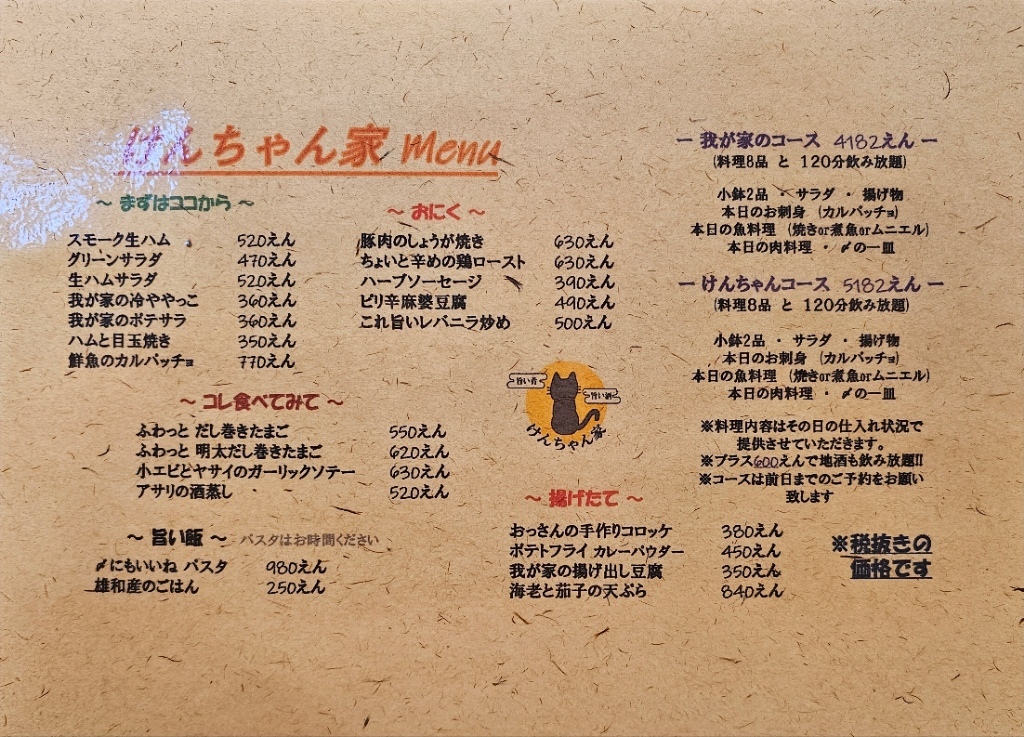 けんちゃん家 Menu
～ まずはココから ～
スモーク生ハム 520えん
グリーンサラダ 470えん
生ハムサラダ 520えん
我が家の冷ややっこ 360えん
我が家のポテサラ 360えん
ハムと目玉焼き 350えん
鮮魚のカルパッチョ 770えん
～ おにく ～
豚肉のしょうが焼き 630えん
ちょいと辛めの鶏ロースト 630えん
ハーブソーセージ 390えん
ピリ辛麻婆豆腐 490えん
これ旨いレバニラ炒め 500えん
～ コレ食べてみて ～
ふわっと だし巻きたまご 550えん
ふわっと 明太だし巻きたまご 620えん
小エビとヤサイのガーリックソテー 630えん
アサリの酒蒸し 520えん
旨い肴
旨い酒
けんちゃん家
～ 旨い飯 ～ パスタはお時間ください
〆にもいいね パスタ 980えん
雄和産のごはん 250えん
～ 揚げたて ～
おっさんの手作りコロッケ 380えん
ポテトフライ カレーパウダー 450えん
我が家の揚げ出し豆腐 350えん
海老と茄子の天ぷら 840えん
ー 我が家のコース 4182えん ー
(料理8品 と 120分飲み放題)
小鉢2品 ・ サラダ ・ 揚げ物
本日のお刺身 (カルパッチョ)
本日の魚料理 (焼きor煮魚orムニエル)
本日の肉料理 ・ 〆の一皿
ー けんちゃんコース 5182えん ー
(料理8品 と 120分飲み放題)
小鉢2品 ・ サラダ ・ 揚げ物
本日のお刺身 (カルパッチョ)
本日の魚料理 (焼きor煮魚orムニエル)
本日の肉料理 ・ 〆の一皿
※料理内容はその日の仕入れ状況で
提供させていただきます。
※プラス600えんで地酒も飲み放題!!
※コースは前日までのご予約をお願い
致します
※税抜きの
価格です